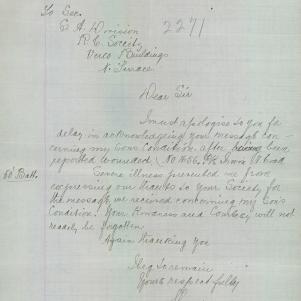 To Sec.
S. A. Division 2271
R. C. Society
Verco Buildings
N. Terrace
Dear Sir
I must apologise to you for
delay in acknowledging your message con-
cerning my Son's Condition after being been
reported wounded. No 1656.
50 Batt. Severe illness prevented me from
expressing our thanks to your Society for
the message we received concerning my Son's
Condition. Your Kindness and Courtesy will not
readily be forgotten
Again thanking you
I beg to remain
Yours respectfully